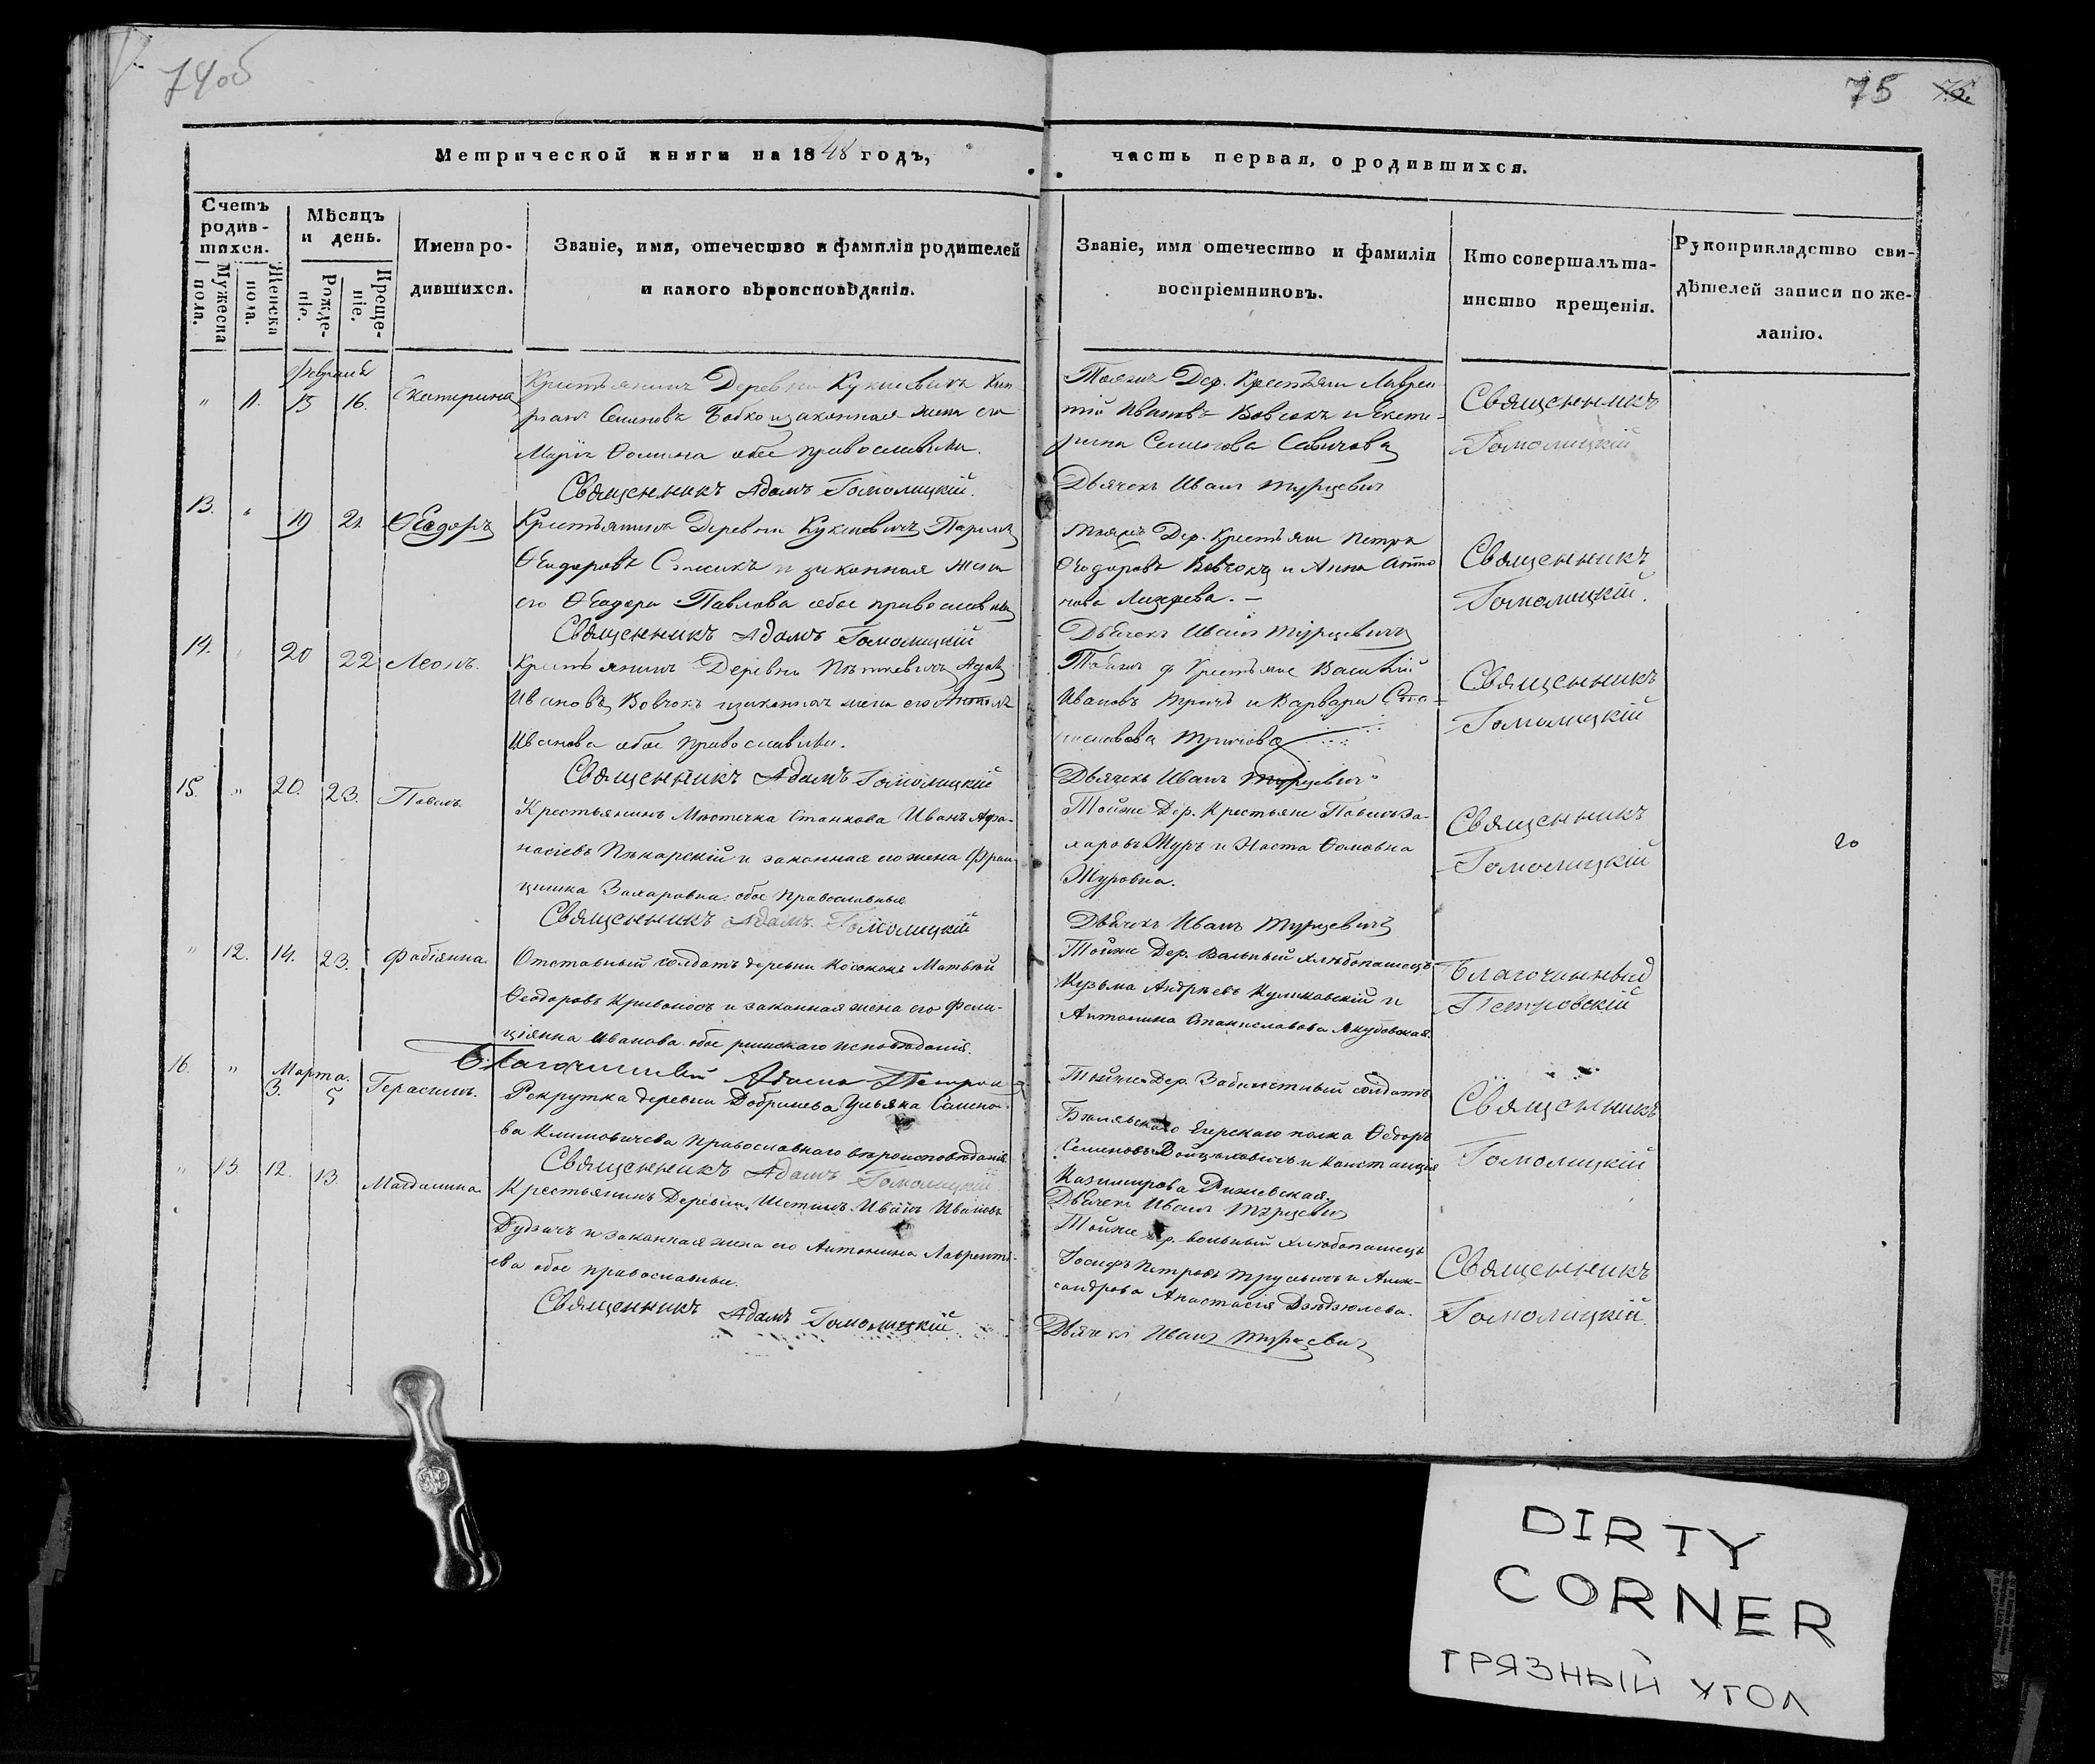 74об
75
Метрической книги на 1848 годъ,
часть первая, о родившихся.
Счетъ родив-шихся.
Мужеска пола.
Женска пола.
Мѣсяцъ и день.
Рожде-ніе.
Креще-ніе.
Имена ро-дившихся.
Званіе, имя, отечество и фамилія родителей
и какого вѣроисповѣданія.
Званіе, имя отечество и фамилія
воспріемниковъ.
Кто совершалъ та-
инство крещенія.
Рукоприкладство сви-
дѣтелей записи по же-
ланію.
Февраля
" 11. 13 16. Екатерина
Крестьянинъ Деревни Кукшевичъ
Семеновъ Бобко и законная жена его
Марія Ѳомина обое православные.
Священникъ Адамъ Гомолицкій.
Дер. Крестьяне Лаврен-
тій Ивановъ Вовчокъ и Екате-
рина Семенова Савичова
Дьячекъ Иванъ Турцевичъ
Священникъ
Гомолицкій
13. " 19 21. Ѳеодоръ
Крестьянинъ Деревни Кукшевичъ
Ѳеодоровъ и законная жена
его Ѳеодора Павлова обое православные
Священникъ Адамъ Гомолицкій
Дер. Крестьяне Петръ
Ѳеодоровъ Вовчокъ и Анна Анто-
нова
Дьячекъ Иванъ Турцевичъ
Священникъ
Гомолицкій.
14. " 20 22 Леонъ.
Крестьянинъ Деревни Адамъ
Ивановъ Вовчокъ и законная жена его
Иванова обое православные.
Священникъ Адамъ Гомолицкій
д. Крестьяне Василій
Ивановъ и Варвара Ста-
ниславова
Дьячекъ Иванъ Турцевичъ
Священникъ
Гомолицкій
15. " 20. 23. Павелъ.
Крестьянинъ Мѣстечка Станкова Иванъ Афа-
насіевъ Пѣкарскій и законная его жена Фран-
цишка Захаровна обое Православные
Священникъ Адамъ Гомолицкій
Тойже Дер. Крестьяне Павелъ За-
харовъ Журъ и Наста Ѳомовна
Журовна.
Дьячекъ Иванъ Турцевичъ
Священникъ
Гомолицкій
20
" 12. 14. 23. Фабіянна.
Отставный солдатъ деревни Матвѣй
Ѳеодоровъ Кривоносъ и законная жена его Фели-
ціянна Иванова обое римскаго исповѣданія.
Благочинный Адамъ
Тойже Дер. Вольный хлѣбопашецъ
Кузьма Андрѣевъ Куликовскій и
Антонина Станиславова Якубовская.
Благочинный
Петровскій
16. " Марта.
3. 5 Герасимъ.
Рекрутка деревни Добринева Ульяна Семено-
ва Климовичева Православнаго вѣроисповѣданія.
Священникъ Адамъ Гомолицкій
Тойже Дер. солдатъ
Егерскаго полка Ѳедоръ
Семеновъ Войцѣховичъ и Констанція
Казимирова
Дьячекъ Иванъ Турцевичъ
Священникъ
Гомолицкій
" 13. 12. 13. Магдалина
Крестьянинъ Деревни Иванъ Ивановъ
и законная жена его Антонина Лавренті-
ева обое православные.
Священникъ Адамъ Гомолицкій
Тойже Дер. вольный хлѣбопашецъ
Іосифъ Петровъ и Алек-
сандрова Анастасія Дзюдзюлева.
Дьячекъ Иванъ Турцевичъ
Священникъ
Гомолицкій.
DIRTY
CORNER
ГРЯЗНЫЙ УГОЛ